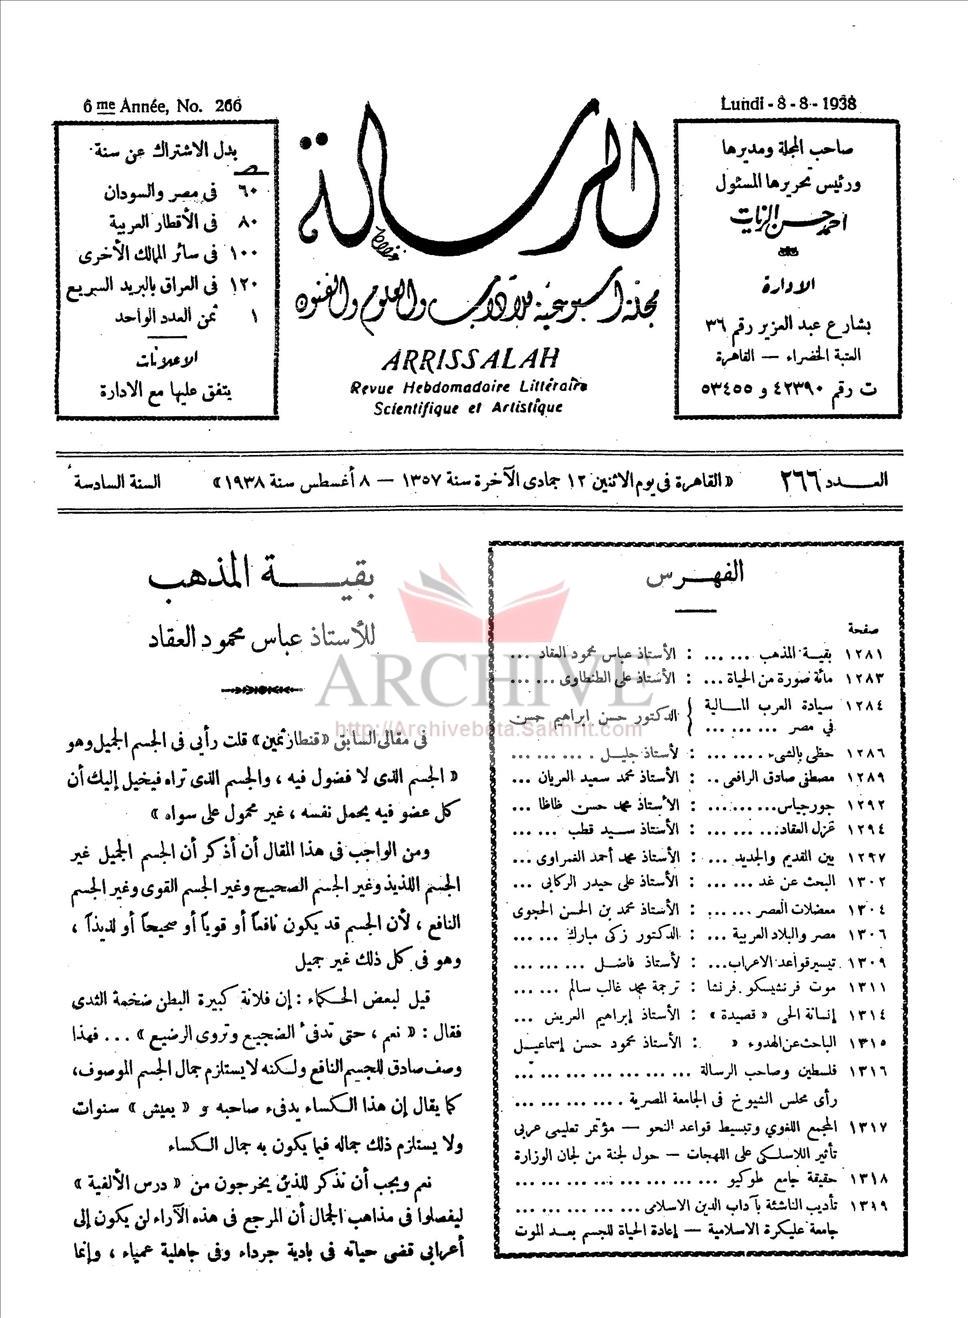 6me Année, No. 266
Lundi - 8 - 8 - 1938
صاحب المجلة ومديرها
ورئيس تحريرها المسئول
احمد حسن الزيات
الادارة
بشارع عبد العزيز رقم ٣٦
العتبة الخضراء — القاهرة
ت رقم ٤٢٣٩٠ و ٥٣٤٥٥
الرسالة
مجلة أسبوعية للآداب والعلوم والفنون
ARRISSALAH
Revue Hebdomadaire Littéraire
Scientifique et Artistique
بدل الاشتراك عن سنة
ص
٦٠ فى مصر والسودان
٨٠ فى الأقطار العربية
١٠٠ فى سائر الممالك الأخرى
١٢٠ فى العراق بالبريد السريع
١ ثمن العدد الواحد
الاعلانات
يتفق عليها مع الادارة
العـــدد ٢٦٦
« القاهرة فى يوم الاثنين ١٢ جمادى الآخرة سنة ١٣٥٧ — ٨ أغسطس سنة ١٩٣٨ »
السنة السادسة
الفهـــرس
صفحة
١٢٨١ بقيـة المذهب ... ... : الأستاذ عباس محمود العقاد ...
١٢٨٣ مائة صورة من الحياة ... : الأستاذ على الطنطاوى ... ...
١٢٨٤ سيادة العرب المـالية
فى مصر ... ... ... } الدكتور حسن ابراهيم حسن
١٢٨٦ حظى بالشىء ... ... ... : لأستاذ جليـل . ... ... ...
١٢٨٩ مصطفى صادق الرافعى .. : الأستاذ محمد سعيد العريان ...
١٢٩٢ جورجياس ... ... ... : الأستاذ محمد حسن ظاظا ...
١٢٩٤ غزل العقاد ... ... ... : الأستاذ سـيد قطب ... ...
١٢٩٧ بين القديم والجديد ... : الأستاذ محمد أحمد الغمراوى ...
١٣٠٢ البحث عن غد ... ... : الأستاذ على حيدر الركابى ...
١٣٠٤ معضلات العصر ... ... : الأستاذ محمد بن الحسن الحجوى
١٣٠٦ مصر والبلاد العربية ... : الدكتور زكى مبارك ... ...
١٣٠٩ تيسير قواعد الاعراب ... : لأستاذ فاضـل ... ... ...
١٣١١ موت فرنشيسكو فرنشا : ترجمة محمد غالب سالم ... ...
١٣١٤ إنسانة الحى « قصيدة » : الأستاذ إبراهيم العريض ...
١٣١٥ الباحث عن الهدوء « : الأستاذ محمود حسن إسماعيـل
١٣١٦ فلسطين وصاحب الرسالة ... ... ... ... ... ...
رأى مجلس الشيوخ فى الجامعة المصرية . ... ... ...
١٣١٧ المجمع اللغوي وتبسيط قواعد النحو — مؤتمر تعليمى عربى
تأثير اللاسلكى على اللهجات — حول لجنة من لجان الوزارة
١٣١٨ حقيقة جامع طوكيو ... ... ... ... ... ... ...
١٣١٩ تأديب الناشئة بآداب الدين الاسلامى ... ... ... ...
جامعة عليكرة الاسلامية — إعادة الحياة للجسم بعـد الموت
بقيـــــة المذهب
للأستاذ عباس محمود العقاد
فى مقالى السابق « قنطار ثمين » قلت رأيى فى الجسم الجميل وهو
« الجسم الذى لا فضول فيه ، والجسم الذى تراه فيخيل إليك أن
كل عضو فيه يحمل نفسه ، غير محمول على سواه »
ومن الواجب فى هذا المقال أن أذكر أن الجسم الجميل غير
الجسم اللذيذ وغير الجسم الصحيح وغير الجسم القوى وغير الجسم
النافع ، لأن الجسم قد يكون نافعاً أو قوياً أو صحيحاً أو لذيذاً ،
وهو فى كل ذلك غير جميل
قيل لبعض الحكماء : إن فلانة كبيرة البطن ضخمة الثدى
فقال : « نعم ، حتى تدفىء الضجيع وتروى الرضيع » ... فهذا
وصف صادق للجسم النافع ولكنه لا يستلزم جمال الجسم الموصوف ،
كما يقال إن هذا الكساء يدفىء صاحبه و « يعيش » سنوات
ولا يستلزم ذلك جماله فيما يكون به جمال الكساء
نعم ويجب أن نذكر للذين يخرجون من « درس الألفية »
ليفصلوا فى مذاهب الجمال أن المرجع فى هذه الآراء لن يكون إلى
أعرابى قضى حياته فى بادية جرداء وفى جاهلية عمياء ، وإنما
ARCHIVE
http://Archivebeta.Sakhrit.com